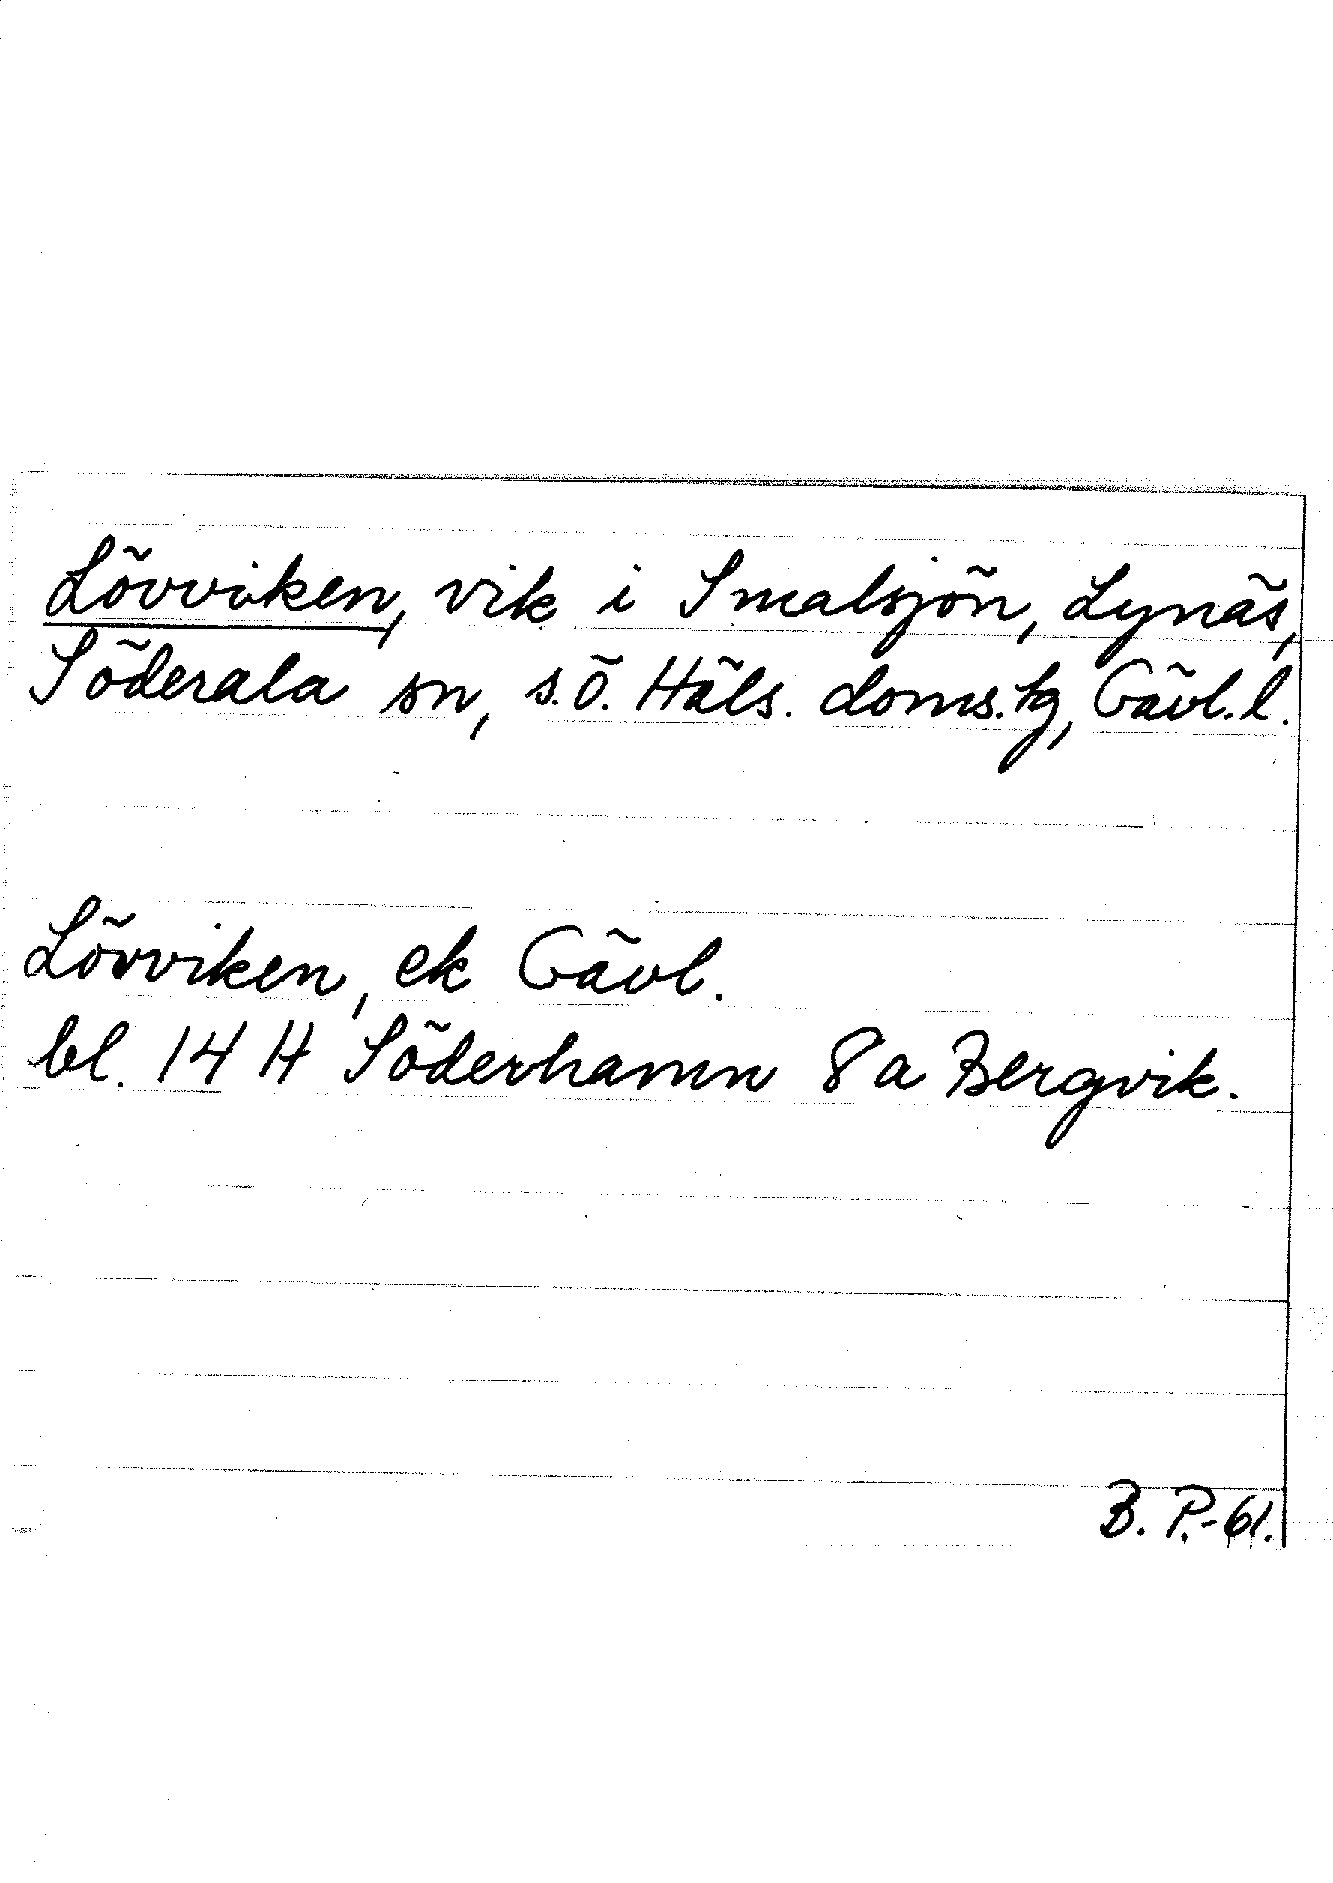 Lövviken, vik i Smalsjön, Lynäs,
Söderala sn, s.ö. Häls. doms.tg, Gävl.l.
Lövviken, ek Gävl.
bl. 14 H Söderhamn 8a Bergvik.
B. P.-61.